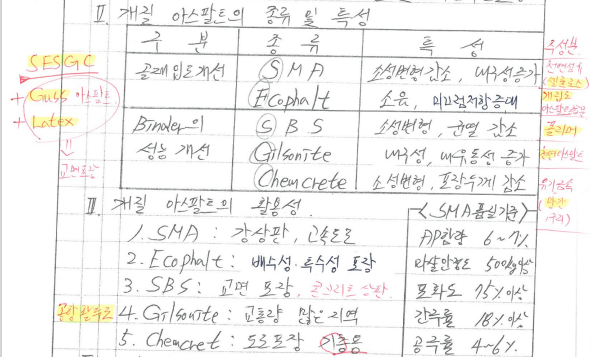 Ⅱ. 개질 아스팔트의 종류 및 특성
구 분 종 류 특 성 조성분
SESGC
+ Guss 아스팔트
+ Latex
⇓
교면포장
골재입도개선 SMA 소성변형감소, 내구성증가 천연섬유 (셀룰로스)
Ecophalt 소음, 미끄럼저항증대 개립도
Binder의 성능 개선 SBS 소성변형, 균열 감소 폴리머
Gilsonite 내구성, 내유동성 증가 천연아스팔트
Chemcrete 소성변형, 포장두께 감소 유기금속 (망간 구리)
Ⅲ. 개질 아스팔트의 활용성
1. SMA : 강상판, 고속도로
2. Ecophalt : 배수성. 특수성 포장
3. SBS : 교면 포장, 콘크리트 상판
공항활주로 4. Gilsonite : 교통량 많은 지역
5. Chemcret : 도로포장 기층용
<SMA품질기준>
AP함량 6~7%
마샬안정도 500kg이상
포화도 75%이상
간극률 18%이상
공극률 4~6%